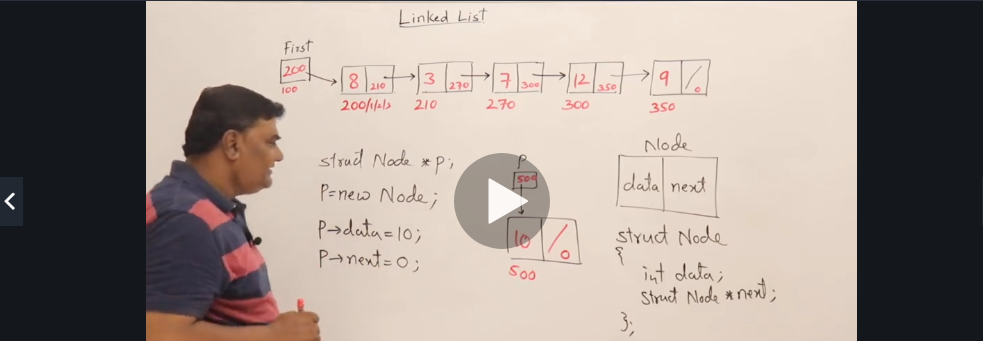 Linked List
First
200
100
8 210
3 270
7 300
12 350
9 / 0
200/1/2/3
210
270
300
350
struct Node *p;
P=new Node;
P→data=10;
P→next=0;
P
500
10 / 0
500
Node
data next
struct Node
{
int data;
struct Node *next;
};